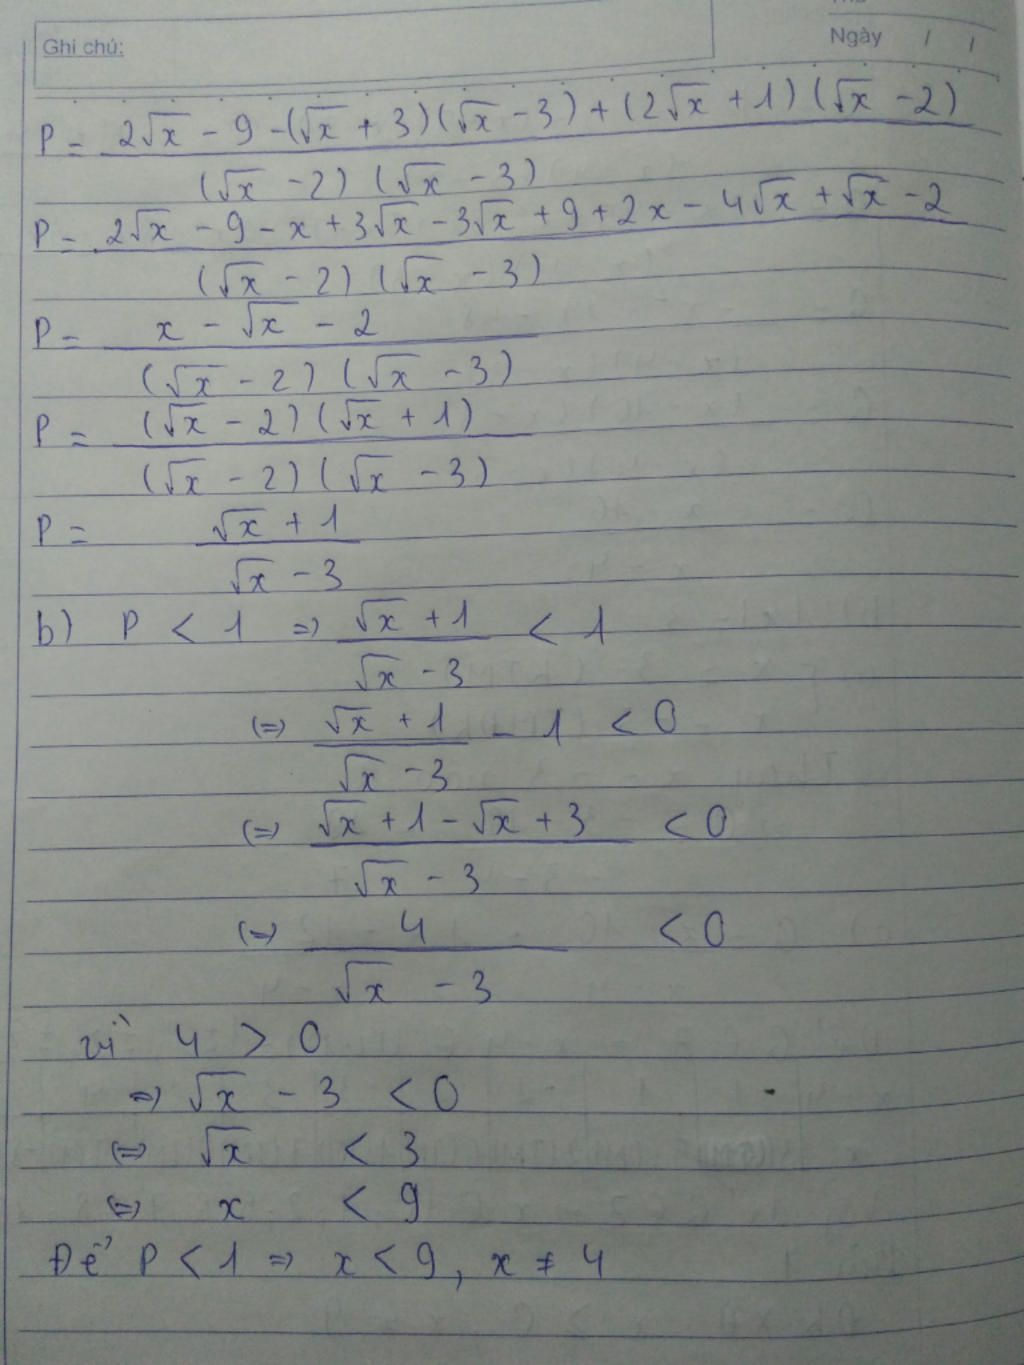 Ghi chú:
Ngày / /
P = 2√x - 9 - (√x + 3)(√x - 3) + (2√x + 1)(√x - 2)
(√x - 2)(√x - 3)
P = 2√x - 9 - x + 3√x - 3√x + 9 + 2x - 4√x + √x - 2
(√x - 2)(√x - 3)
P = x - √x - 2
(√x - 2)(√x - 3)
P = (√x - 2)(√x + 1)
(√x - 2)(√x - 3)
P = √x + 1
√x - 3
b) P < 1 => √x + 1 < 1
√x - 3
(=) √x + 1 - 1 < 0
√x - 3
(=) √x + 1 - √x + 3 < 0
√x - 3
(=) 4 < 0
√x - 3
vì 4 > 0
=> √x - 3 < 0
(=) √x < 3
(=) x < 9
Để P < 1 => x < 9, x ≠ 4